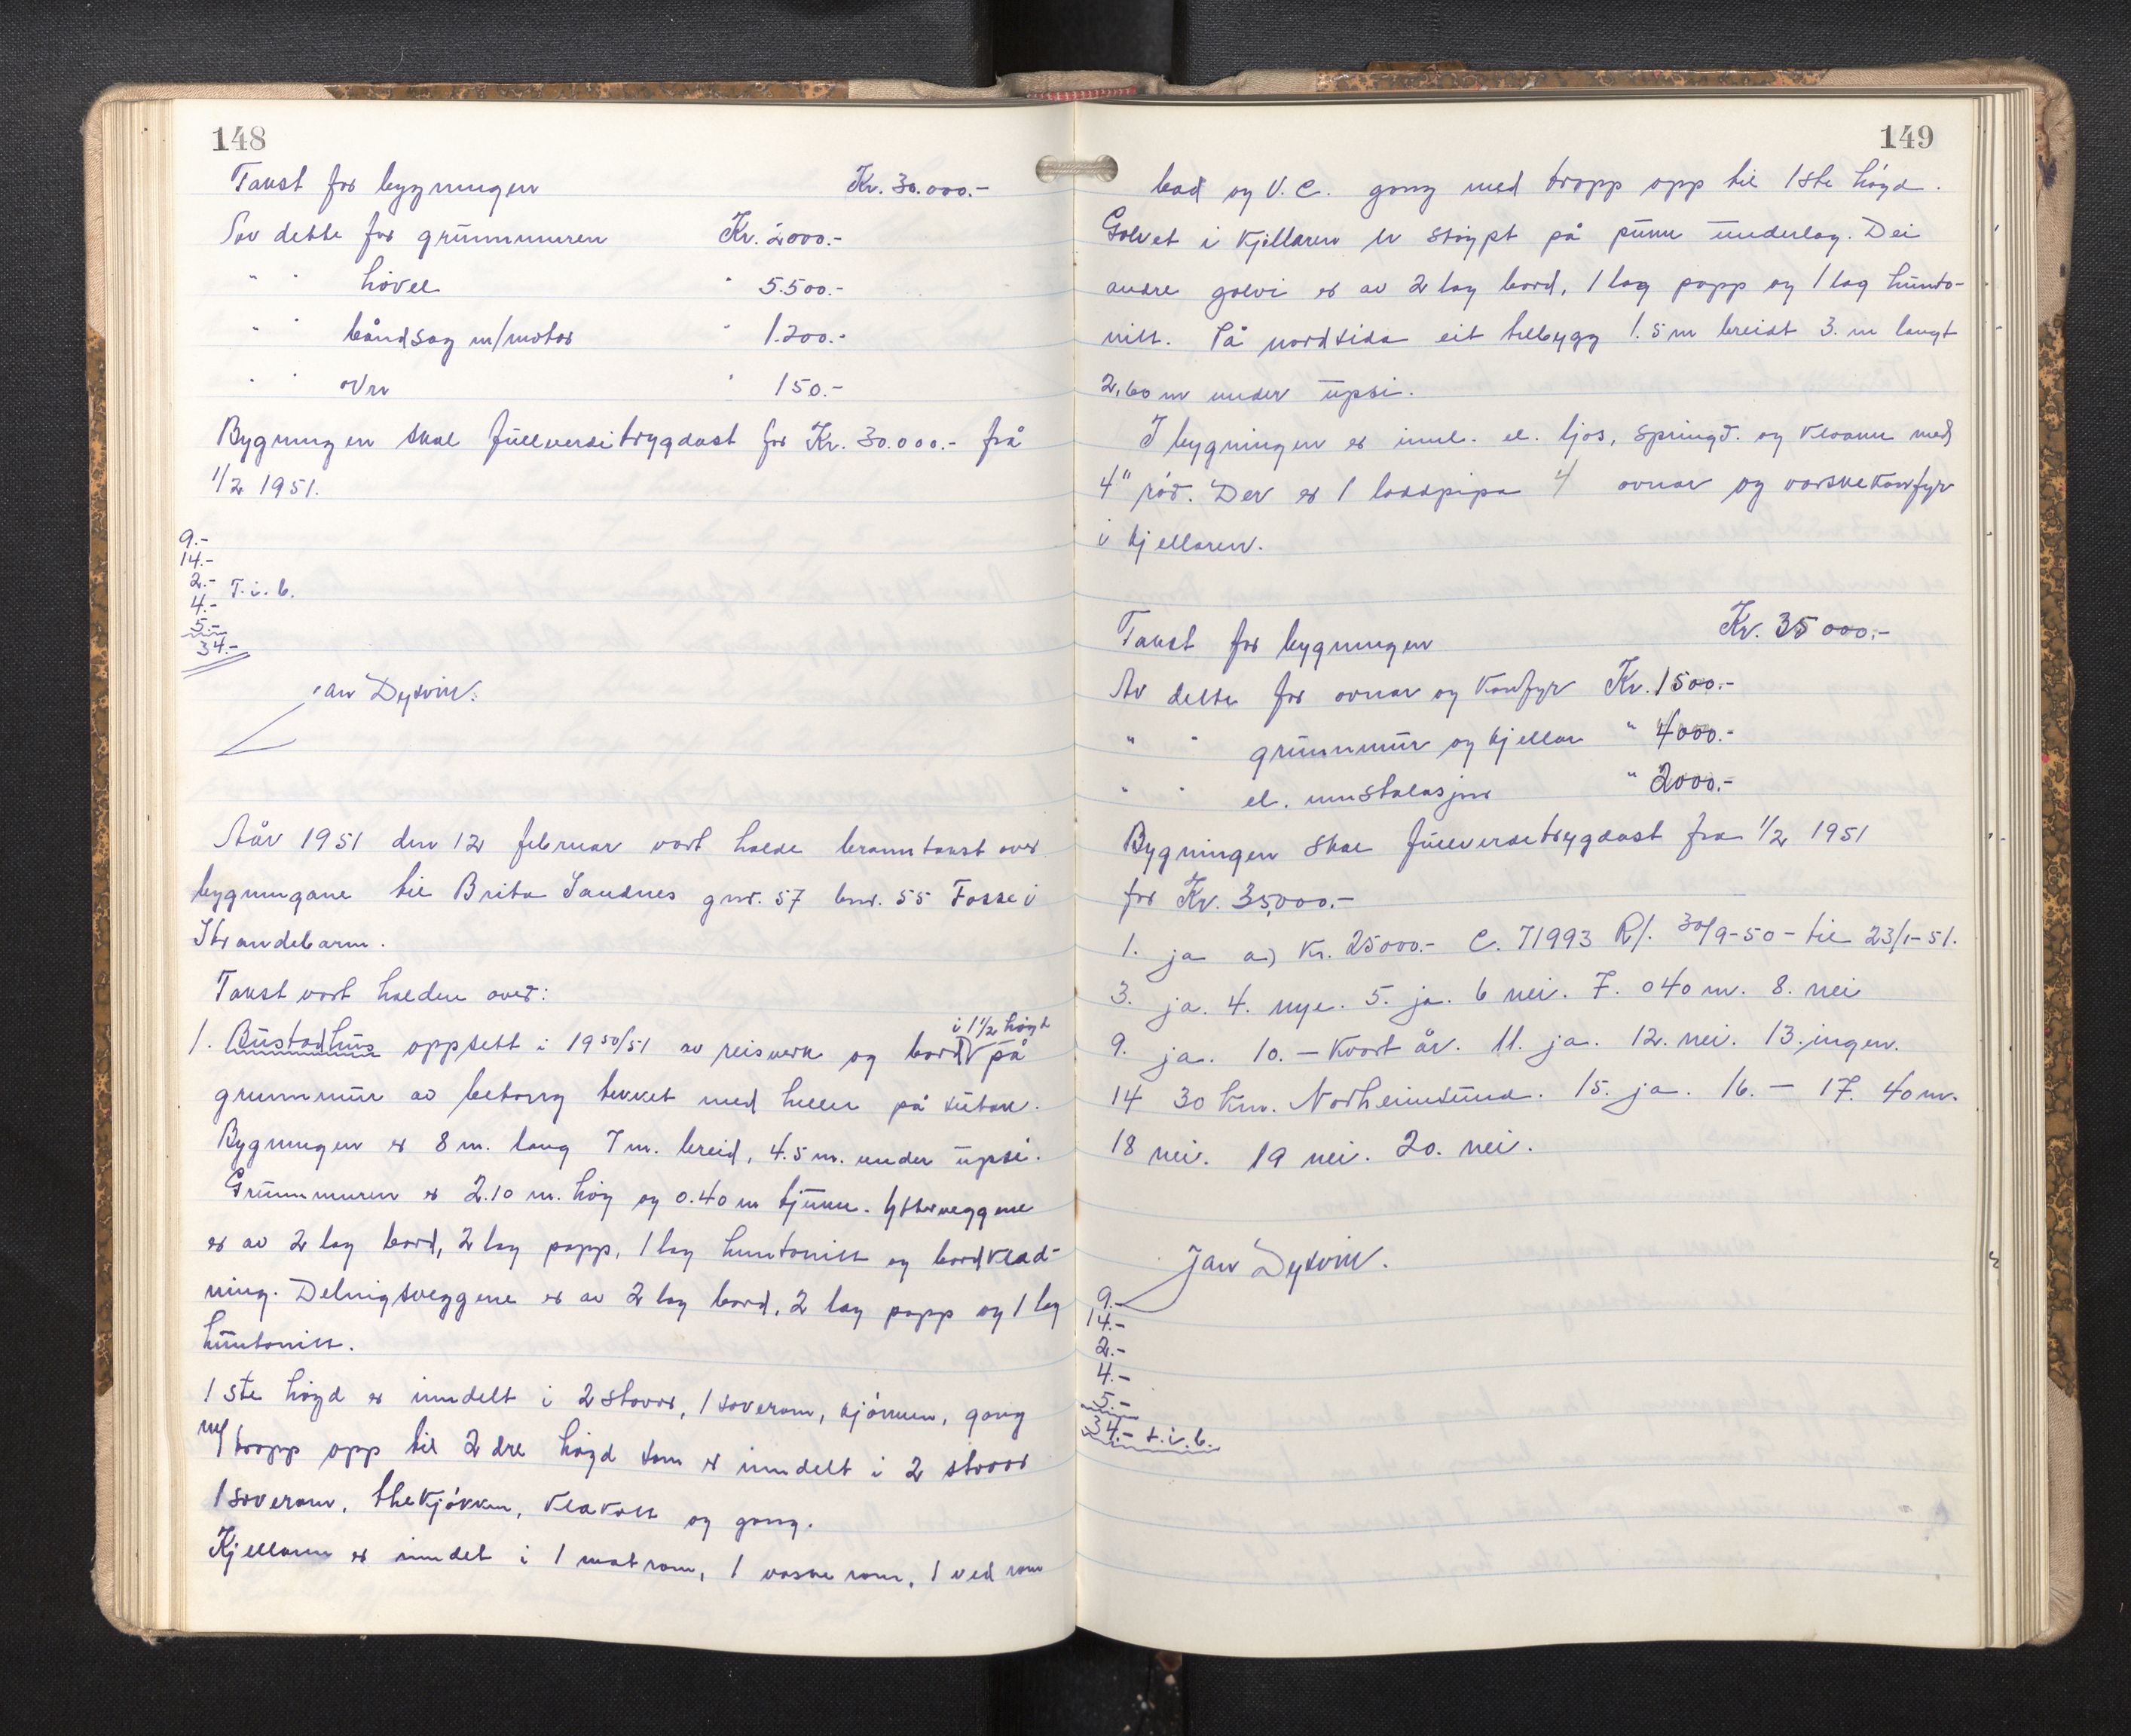 148
Takst for bygningen Kr. 30.000.-
Av dette for grunnmuren Kr. 2000.-
" " høvel " 5.500.-
" " båndsag m/motor " 1.200.-
" " ovn " 150.-
Bygningen skal fullverditrygdast for Kr. 30.000.- frå
1/2 1951.
9.-
14.-
2.- T.i.b.
4.-
5.-
34.-
Jan Dysvik.
År 1951 den 12 februar vart halde branntakst over
bygningane til Brita Sandnes gnr. 57 bnr. 55 Fosse i
Strandebarm.
Takst vart halden over:
i 1 1/2 høgd
1. Bustadhus oppsett i 1950/51 av reisverk og bord på
grunnmur av betong tekket med heller på sutak.
Bygningen er 8 m. lang 7 m. breid, 4.5 m. under upsi.
Grunnmuren er 2.10 m. høg og 0.40 m tjukk. Ytterveggene
er av 2 lag bord, 2 lag papp, 1 lag huntonitt og bordklad-
ning. Delingsveggene er av 2 lag bord, 2 lag papp og 1 lag
huntonitt.
1ste høgd er inndelt i 2 stover, 1 soverom, kjøkken, gang
m/tropp opp til 2dre høgd som er inndelt i 2 stover
1 soverom, thekjøkken, klekott og gang.
Kjellaren er inndelt i 1 matrom, 1 vaskerom, 1 vedrom
149
bad og V.C. gang med tropp opp til 1ste høgd.
Golvet i kjellaren er støypt på punn underlag. Dei
andre golvi er av 2 lag bord, 1 lag papp og 1 lag hunto-
nitt. På nordsida eit tilbygg 1.5 m breidt 3. m langt
2,60 m under upsi.
I bygningen er innl. el. ljos, springv. og kloakk med
4" rør. Der er 1 laspipa 4 ovnar og vaskekomfyr
i kjellaren.
Takst for bygningen Kr. 35 000.-
Av dette for ovnar og komfyr Kr. 1500.-
" " grunnmur og kjellar " 4000.-
" " el. innstalasjon " 2000.-
Bygningen skal fullverditrygdast fra 1/2 1951
for Kr. 35,000.-
1. ja a) Kr. 25000.- C. 71993 R/. 30/9-50 - til 23/1-51.
3. ja. 4. nye. 5. ja. 6 nei. 7. 040 m. 8. nei
9. ja. 10. - Kvart år. 11. ja. 12. nei. 13. ingen.
14 30 km. Norheimsund. 15. ja. 16. - 17. 40 m.
18 nei. 19 nei. 20. nei.
Jan Dysvik.
9.-
14.-
2.-
4.-
5.-
34.- t.i.b.